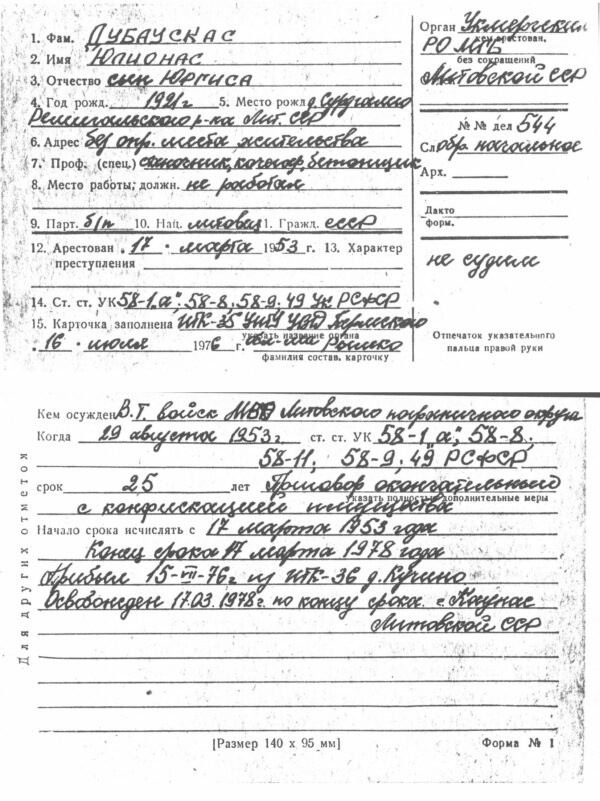 1. Фам. Лубаускас
2. Имя Юлионас
3. Отчество сын Юргиса
4. Год рожд. 1921 г 5. Место рожд.
Лит. ССР
6. Адрес без опр. места жительства
7. Проф. (спец.) кочегар, бетонщик
8. Место работы, должн. не работал
9. Парт. б/п 10. Нац. литовец 11. Гражд. СССР
12. Арестован "17" марта 1953 г. 13. Характер
преступления
14. Ст. ст. УК 58-1 "а", 58-8, 58-9, 49 УК РСФСР
15. Карточка заполнена ИТК-35 УИТУ УВД Пермского
указать название органа
"16" июля 1976 г.
фамилия состав. карточку
Орган Укмергским
кем арестован,
РО МГБ
без сокращений
Литовской ССР
№ № дел 544
Сл. обр. начальное
Арх.
Дакто
форм.
не судим
Отпечаток указательного
пальца правой руки
Кем осужден В.Т. войск МВД Литовского пограничного округа
Когда 29 августа 1953 г. ст. ст. УК 58-1 "а", 58-8,
58-11, 58-9, 49 РСФСР
срок 25 лет Приговор окончательный
указать полностью дополнительные меры
с конфискацией имущества
Начало срока исчислять с 17 марта 1953 года
Конец срока 17 марта 1978 года
Прибыл 15-VII-76 г. из ИТК-36 д. Кучино
Освобожден 17.03.1978 г. по концу срока г. Каунас
Литовской ССР
Для других отметок
[Размер 140 х 95 мм] Форма № 1